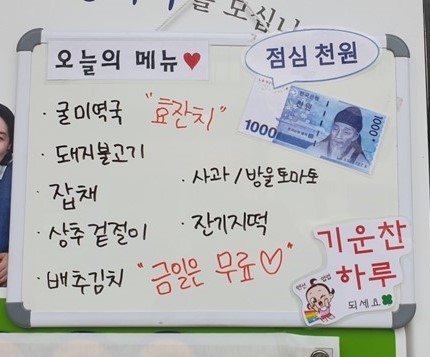 를 모십니
오늘의 메뉴♥
점심 천원
· 굴미역국 "효잔치"
천원
1000
1000
· 돼지불고기
· 잡채
· 사과 / 방울토마토
· 상추겉절이
· 잔기지떡
· 배추김치 "금일은 무료♡"
기운찬
하루
되세요